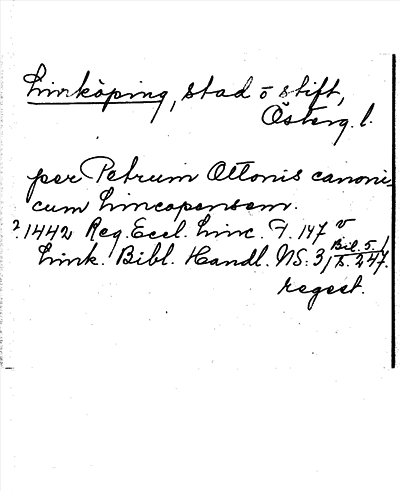 Linköping, stad o stift,
Österg. l.
per Petrum Ottonis canoni-
cum Lincopensem.
? 1442 Reg. Eccl. Linc. F. 147 v
Link. Bibl. Handl. NS. 3, Bil. 5,
s. 247.
regest.